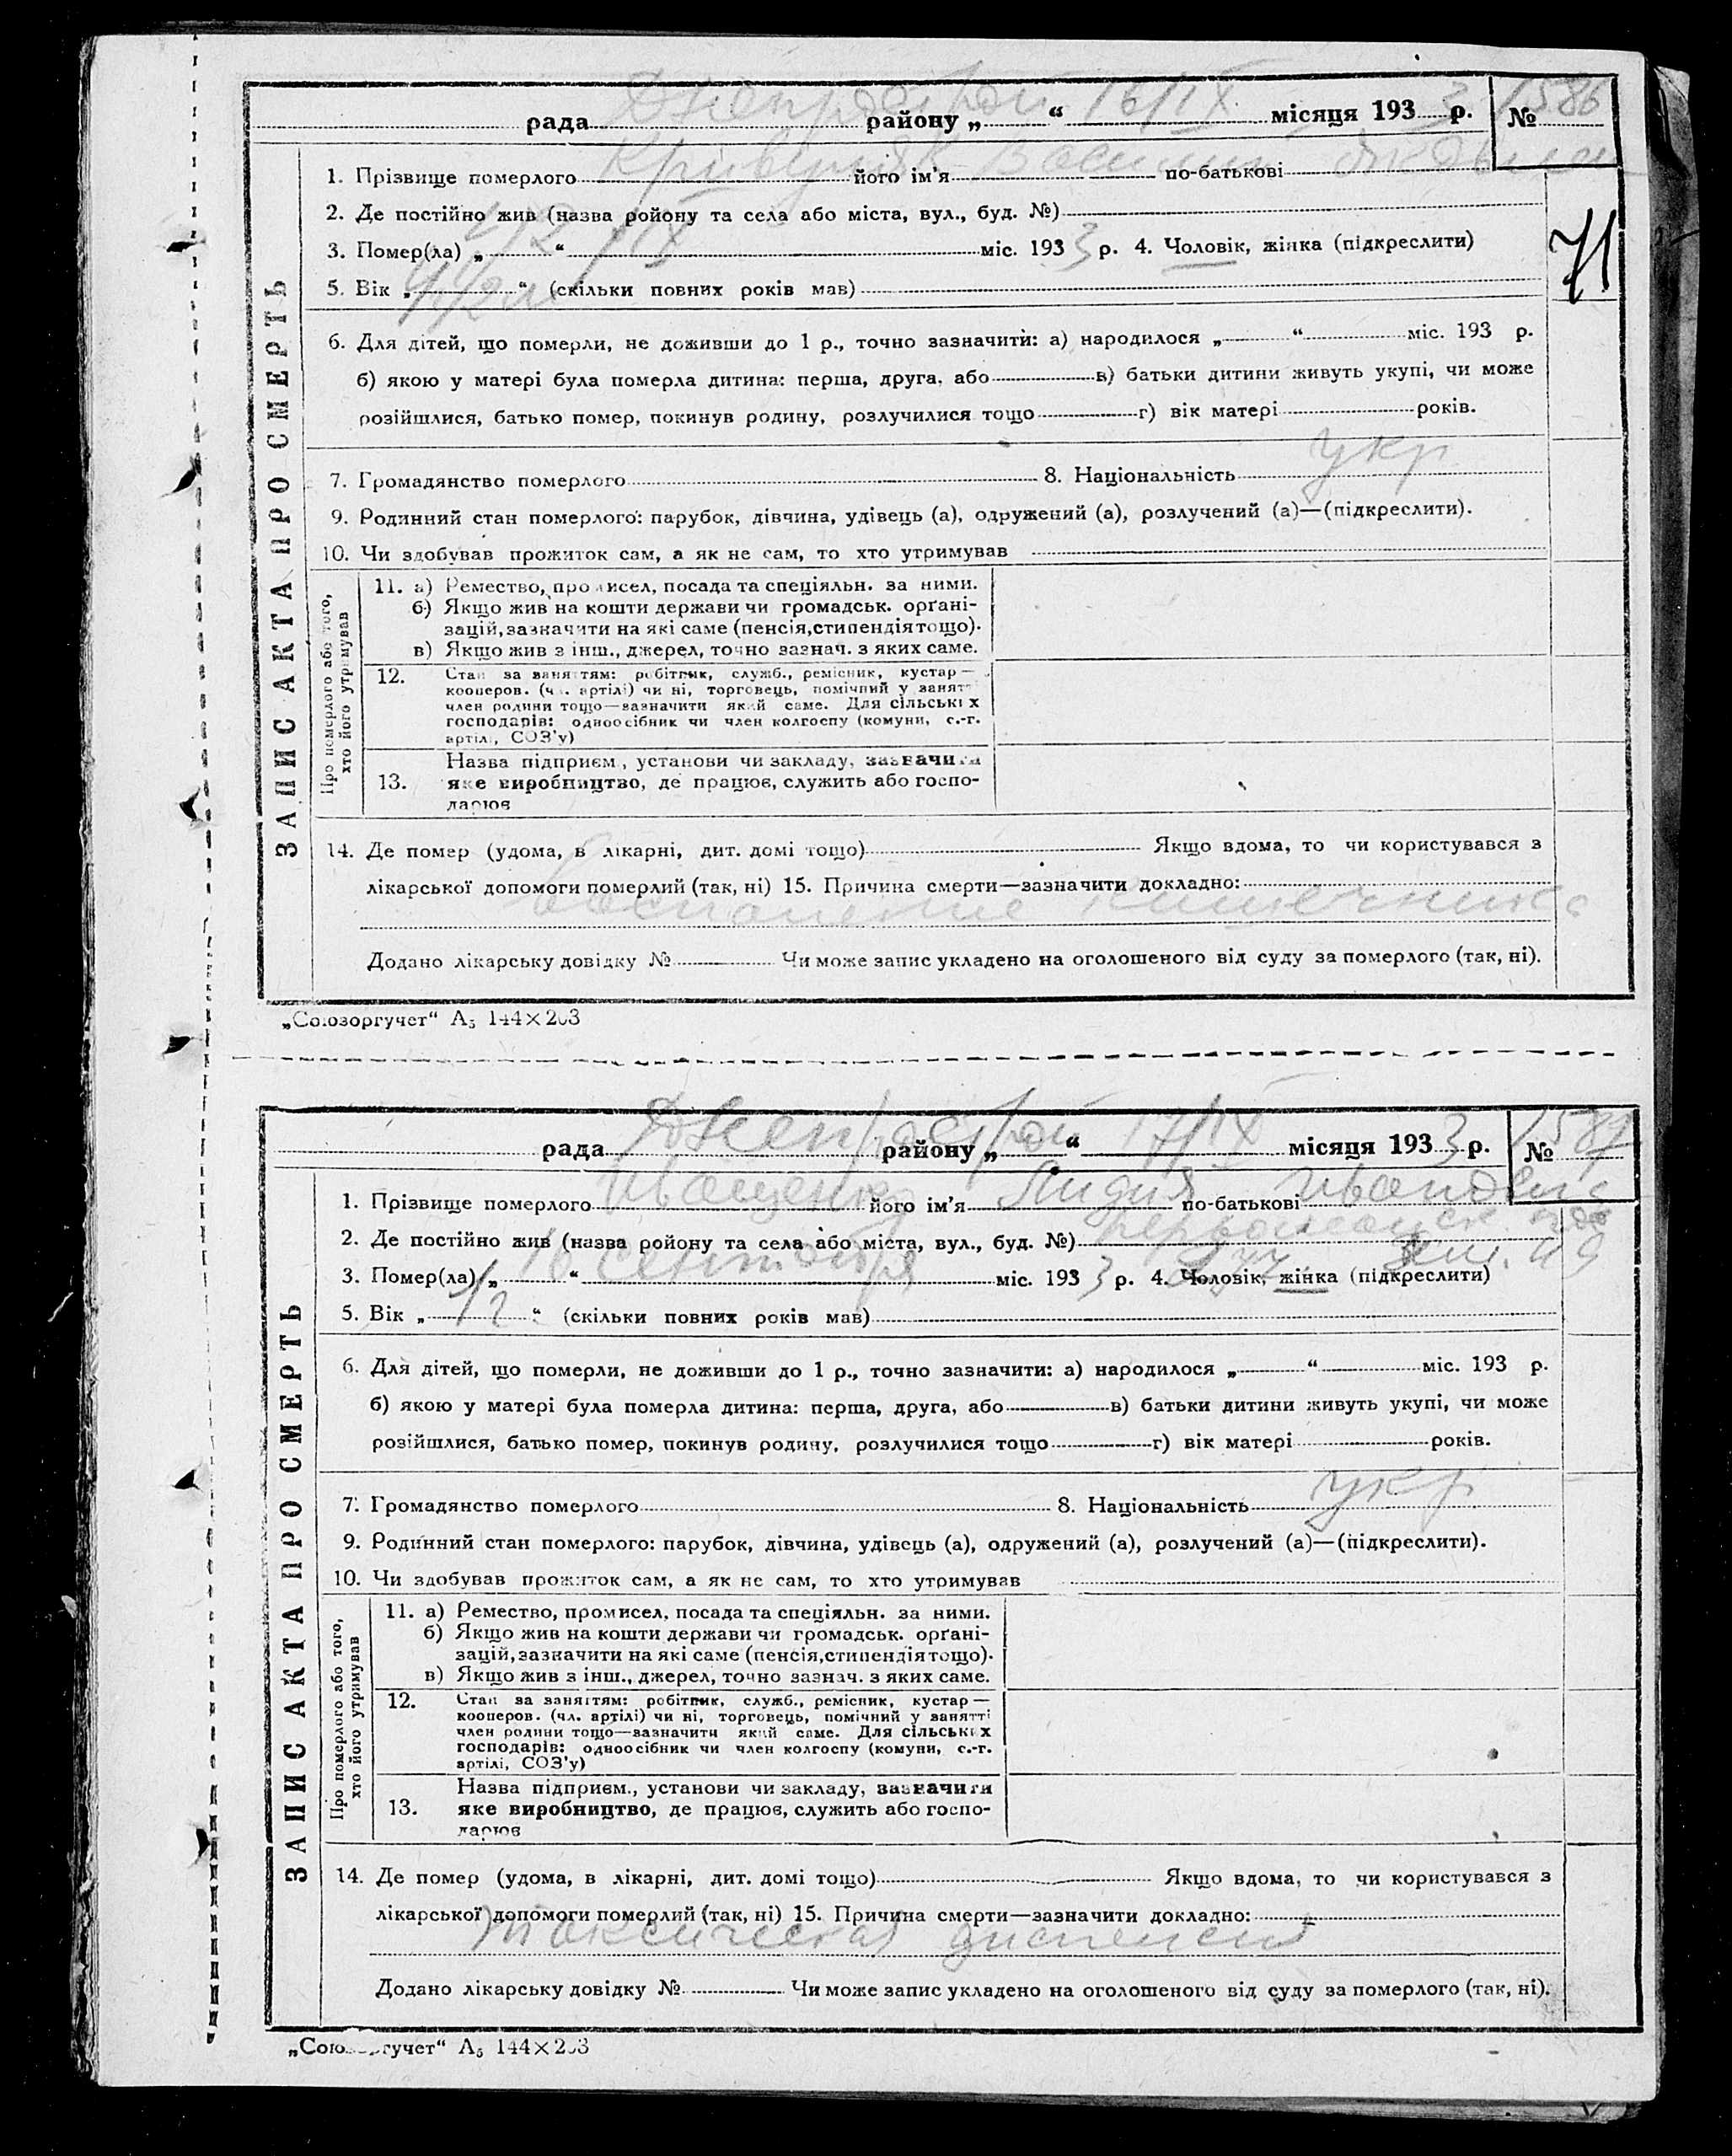 Днепрострой 16/IX 3 1586
рада районy „ “ місяця 193 р. №
Василий
1. Прізвище померлого його ім'я по-батькові
2. Де постійно жив (назва ройону та села або міста, вул., буд. №)
3. Помер(ла) „ “ IX міс. 193 3 р. 4. Чоловік, жінка (підкреслити)
71
5. Вік „ “ (скільки повних років мав)
6. Для дітей, що померли, не доживши до 1 р., точно зазначити: а) народилося „ “ міс. 193 р.
б) якою у матері була померла дитина: перша, друга, або в) батьки дитини живуть укупі, чи може
розійшлися, батько помер, покинув родину, розлучилися тощо г) вік матері років.
7. Громадянство померлого 8. Національність укр
9. Родинний стан померлого: парубок, дівчина, удівець (а), одружений (а), розлучений (а)—(підкреслити).
10. Чи здобував прожиток сам, а як не сам, то хто утримував
ЗАПИС АКТА ПРО СМЕРТЬ
Про померлого або того,
хто його утримував
11. а) Ремество, промисел, посада та спеціяльн. за ними.
б) Якщо жив на кошти держави чи громадськ. орґані-
зацій, зазначити на які саме (пенсія, стипендія тощо).
в) Якщо жив з інш., джерел, точно зазнач. з яких саме.
12. Стан за заняттям: робітник, служб., ремісник, кустар—
кооперов. (чл. артілі) чи ні, торговець, помічний у занятті
член родини тощо—зазначити який саме. Для сільських
господарів: одноосібник чи член колгоспу (комуни, с.-г.
артілі, СОЗ'у)
Назва підприєм., установи чи закладу, зазначити
13. яке виробництво, де працює, служить або госпо-
дарює
14. Де помер (удома, в лікарні, дит. домі тощо) Якщо вдома, то чи користувався з
лікарської допомоги померлий (так, ні) 15. Причина смерти—зазначити докладно:
воспаление кишечника
Додано лікарську довідку № Чи може запис укладено на оголошеного від суду за померлого (так, ні).
„Союзоргучет“ А₅ 144×203
Днепрострой 17/IX 3 1587
рада району „ “ місяця 193 р. №
Иващенко Лидия Ивановна
1. Прізвище померлого його ім'я по-батькові
2. Де постійно жив (назва ройону та села або міста, вул., буд. №)
16 сентября
3. Помер(ла) „ “ міс. 193 3 р. 4. Чоловік, жінка (підкреслити)
5. Вік „ 1/2 “ (скільки повних років мав)
6. Для дітей, що померли, не доживши до 1 р., точно зазначити: а) народилося „ “ міс. 193 р.
б) якою у матері була померла дитина: перша, друга, або в) батьки дитини живуть укупі, чи може
розійшлися, батько помер, покинув родину, розлучилися тощо г) вік матері років.
7. Громадянство померлого 8. Національність укр
9. Родинний стан померлого: парубок, дівчина, удівець (а), одружений (а), розлучений (а)—(підкреслити).
10. Чи здобував прожиток сам, а як не сам, то хто утримував
ЗАПИС АКТА ПРО СМЕРТЬ
Про померлого або того,
хто його утримував
11. а) Ремество, промисел, посада та спеціяльн. за ними.
б) Якщо жив на кошти держави чи громадськ. орґані-
зацій, зазначити на які саме (пенсія, стипендія тощо).
в) Якщо жив з інш., джерел, точно зазнач. з яких саме.
12. Стан за заняттям: робітник, служб., ремісник, кустар—
кооперов. (чл. артілі) чи ні, торговець, помічний у занятті
член родини тощо—зазначити який саме. Для сільських
господарів: одноосібник чи член колгоспу (комуни, с.-г.
артілі, СОЗ'у)
Назва підприєм., установи чи закладу, зазначити
13. яке виробництво, де працює, служить або госпо-
дарює
14. Де помер (удома, в лікарні, дит. домі тощо) Якщо вдома, то чи користувався з
лікарської допомоги померлий (так, ні) 15. Причина смерти—зазначити докладно:
токсическая диспепсия
Додано лікарську довідку № Чи може запис укладено на оголошеного від суду за померлого (так, ні).
„Союзоргучет“ А₅ 144×203